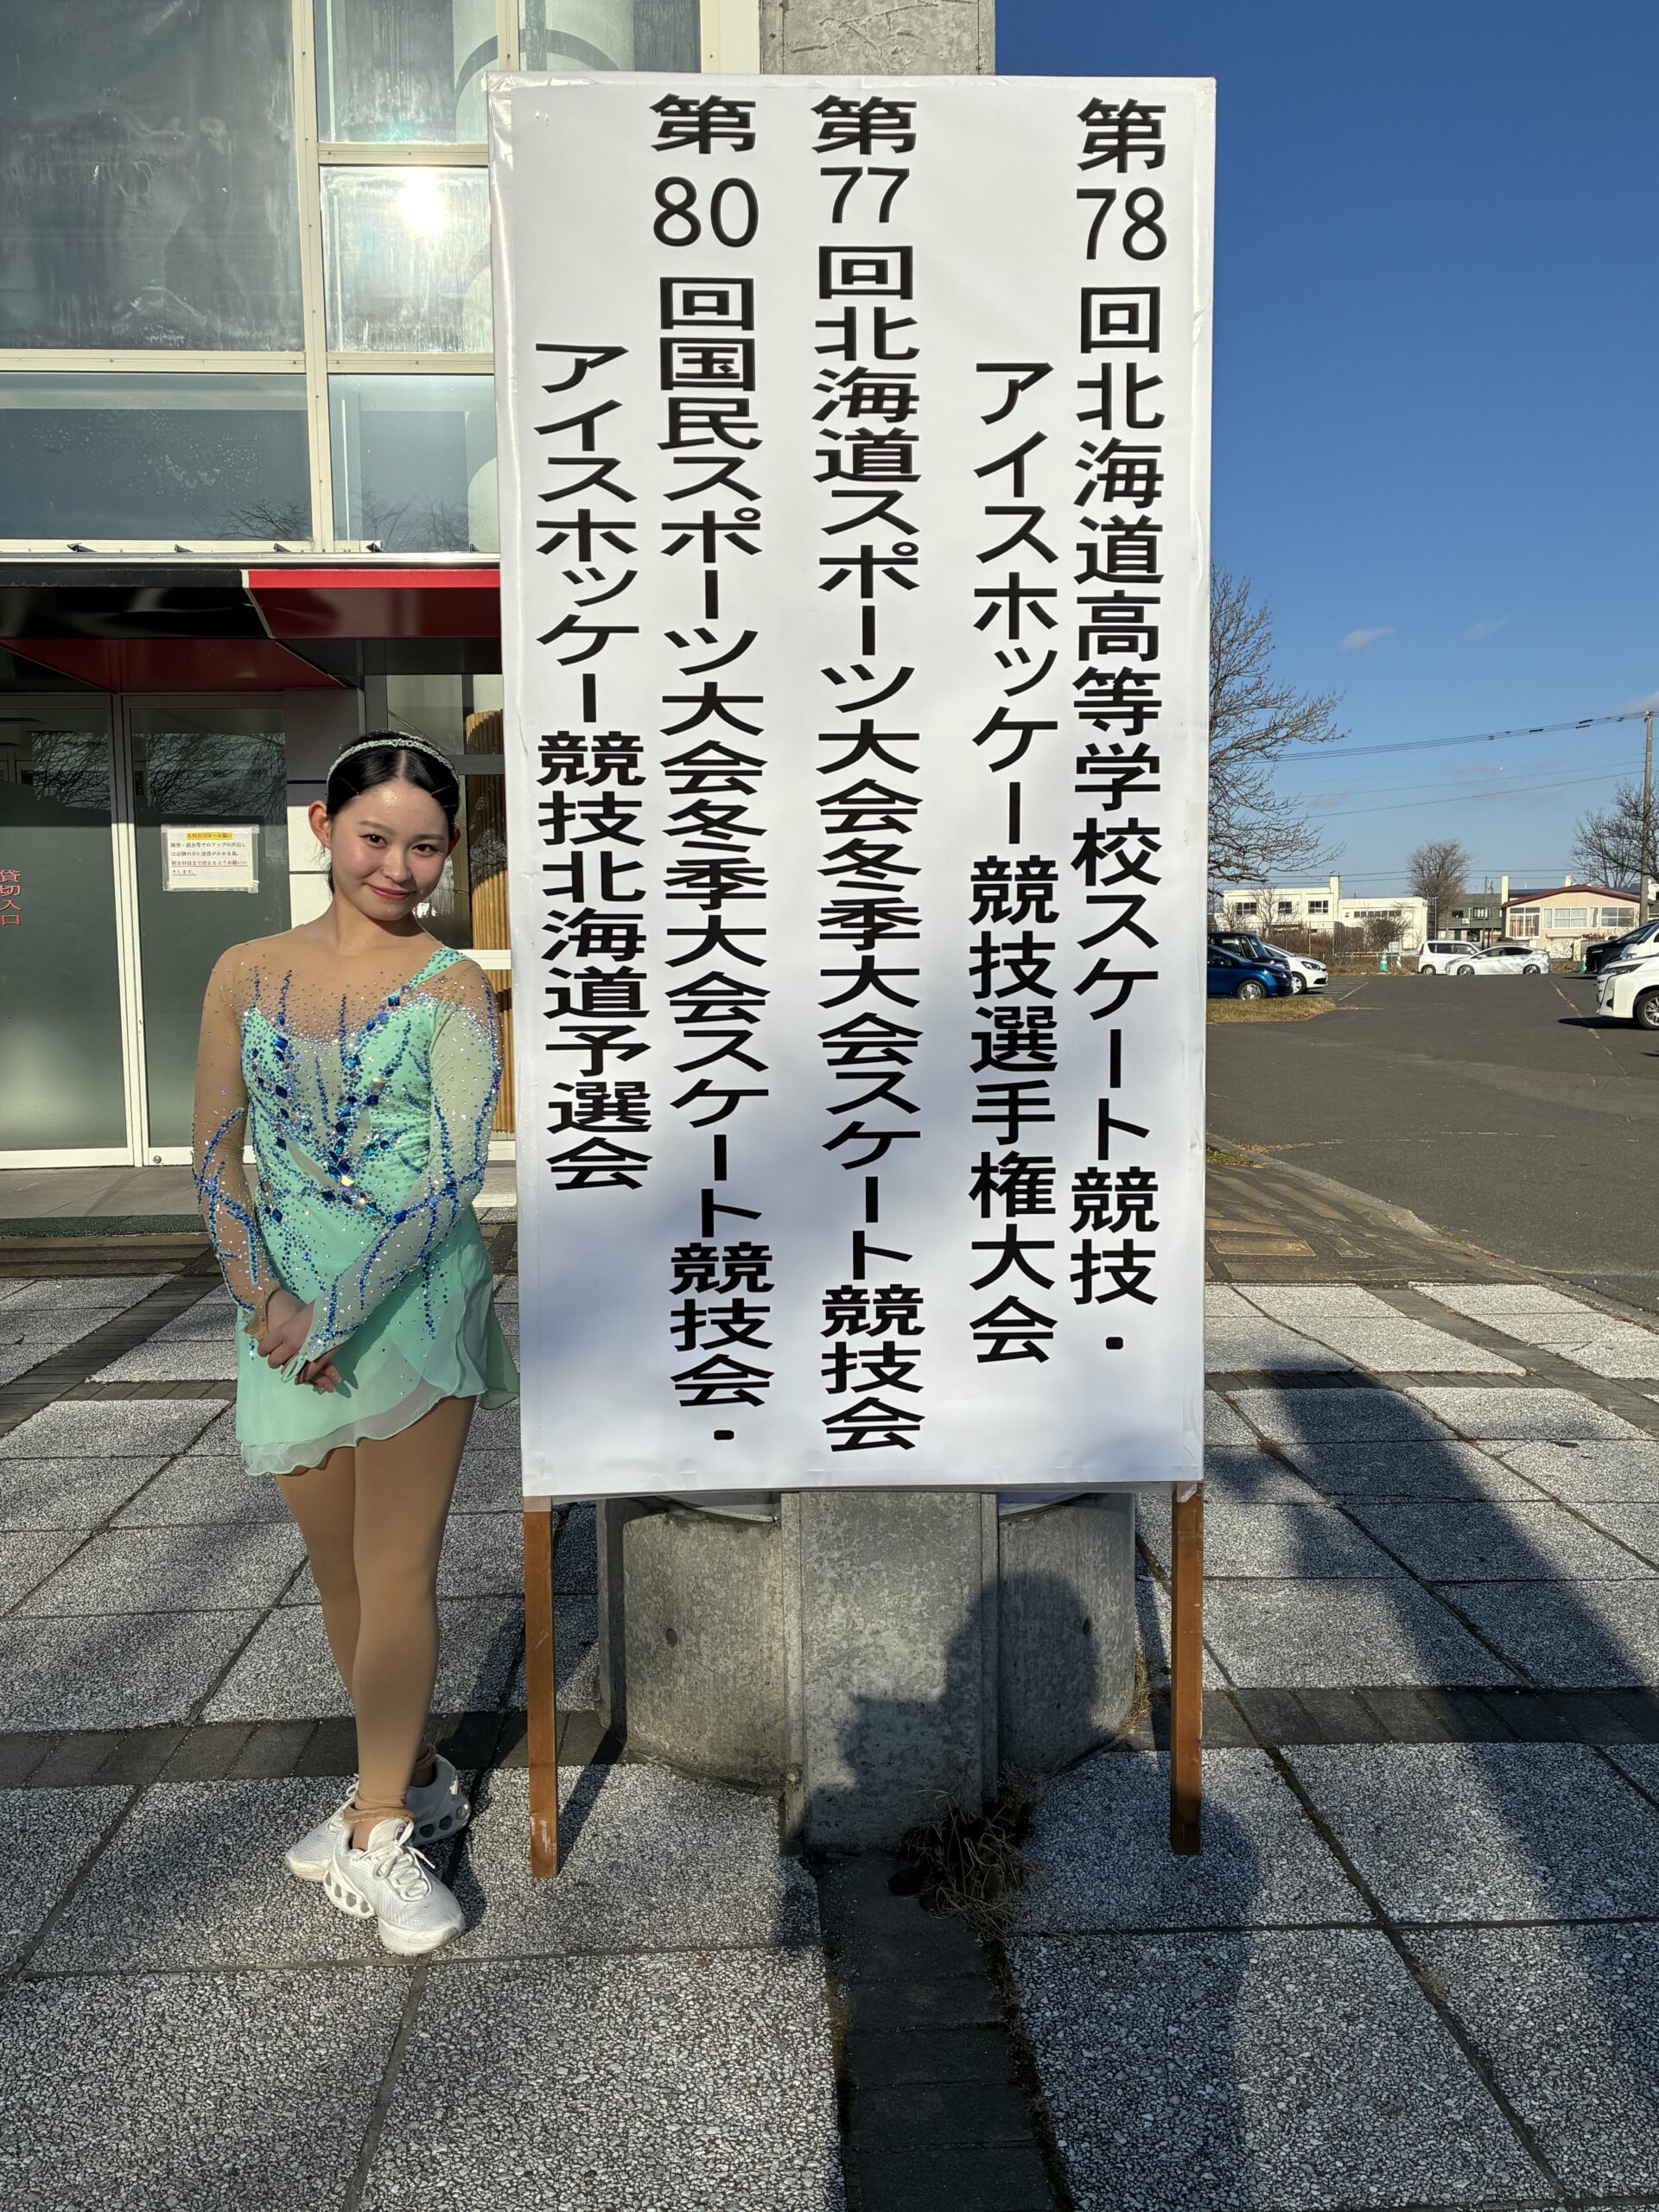 第78回北海道高等学校スケート競技・
アイスホッケー競技選手権大会
第77回北海道スポーツ大会冬季大会スケート競技会
第80回国民スポーツ大会冬季大会スケート競技会・
アイスホッケー競技北海道予選会
貸切入口